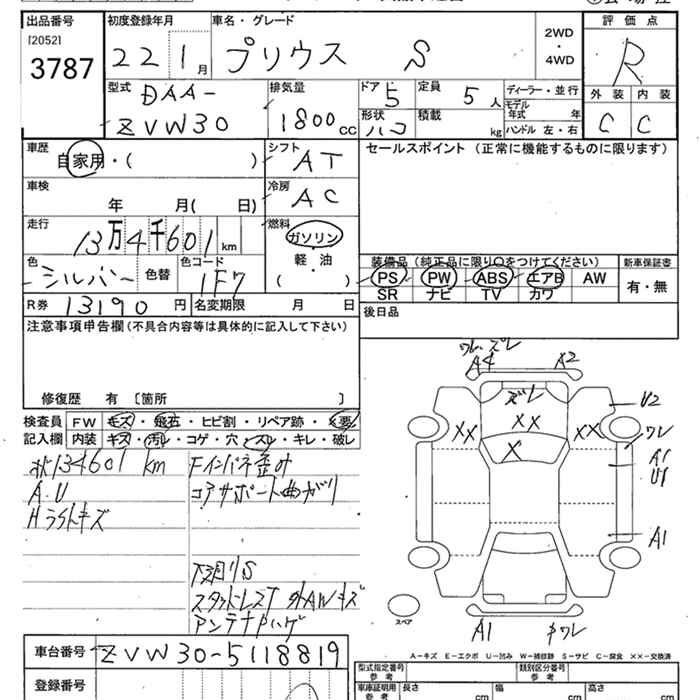 出品番号
[2052]
3787
初度登録年月
22 1月
車名・グレード
プリウス S
2WD
・
4WD
評価点
R
型式
DAA-
ZVW30
排気量
1800cc
ドア
5
定員
5人
形状
ハコ
積載
kg
ディーラー・並行
モデル年式 年
ハンドル 左・右
外装
C
内装
C
車歴
自家用・( )
シフト
AT
セールスポイント (正常に機能するものに限ります)
車検
年 月( 日)
冷房
AC
走行
13万4千601km
燃料
ガソリン
軽・油
( )
色
シルバー
色替
色コード
1F7
装備品(純正品に限り○をつけてください)
PS PW ABS エアB AW
SR ナビ TV カワ
新車保証書
有・無
R券 13190円
名変期限 月 日
後日品
注意事項申告欄(不具合内容等は具体的に記入して下さい)
修復歴 有 〔箇所 〕
検査員
記入欄
FW キズ・飛石・ヒビ割・リペア跡・×要
内装 キズ・汚レ・コゲ・穴・スレ・キレ・破レ
134601 km
A.U
Hライトキズ
Fインパネ歪み
コアサポート曲がり
下廻りS
スタッドレスT 外AWキズ
アンテナハゲ
ワレ・ズレ
A4
X2
ズレ
XX
XX
XX
X
U2
ワレ
A1
U1
A1
スペア
A1
ワレ
A-キズ E-エクボ U-凹み W-補修跡 S-サビ C-腐食 XX-交換済
車台番号
ZVW30-5118819
登録番号
型式指定番号
参考
類別区分番号
参考
車庫証明用
参考
長さ
cm
幅
cm
高さ
cm